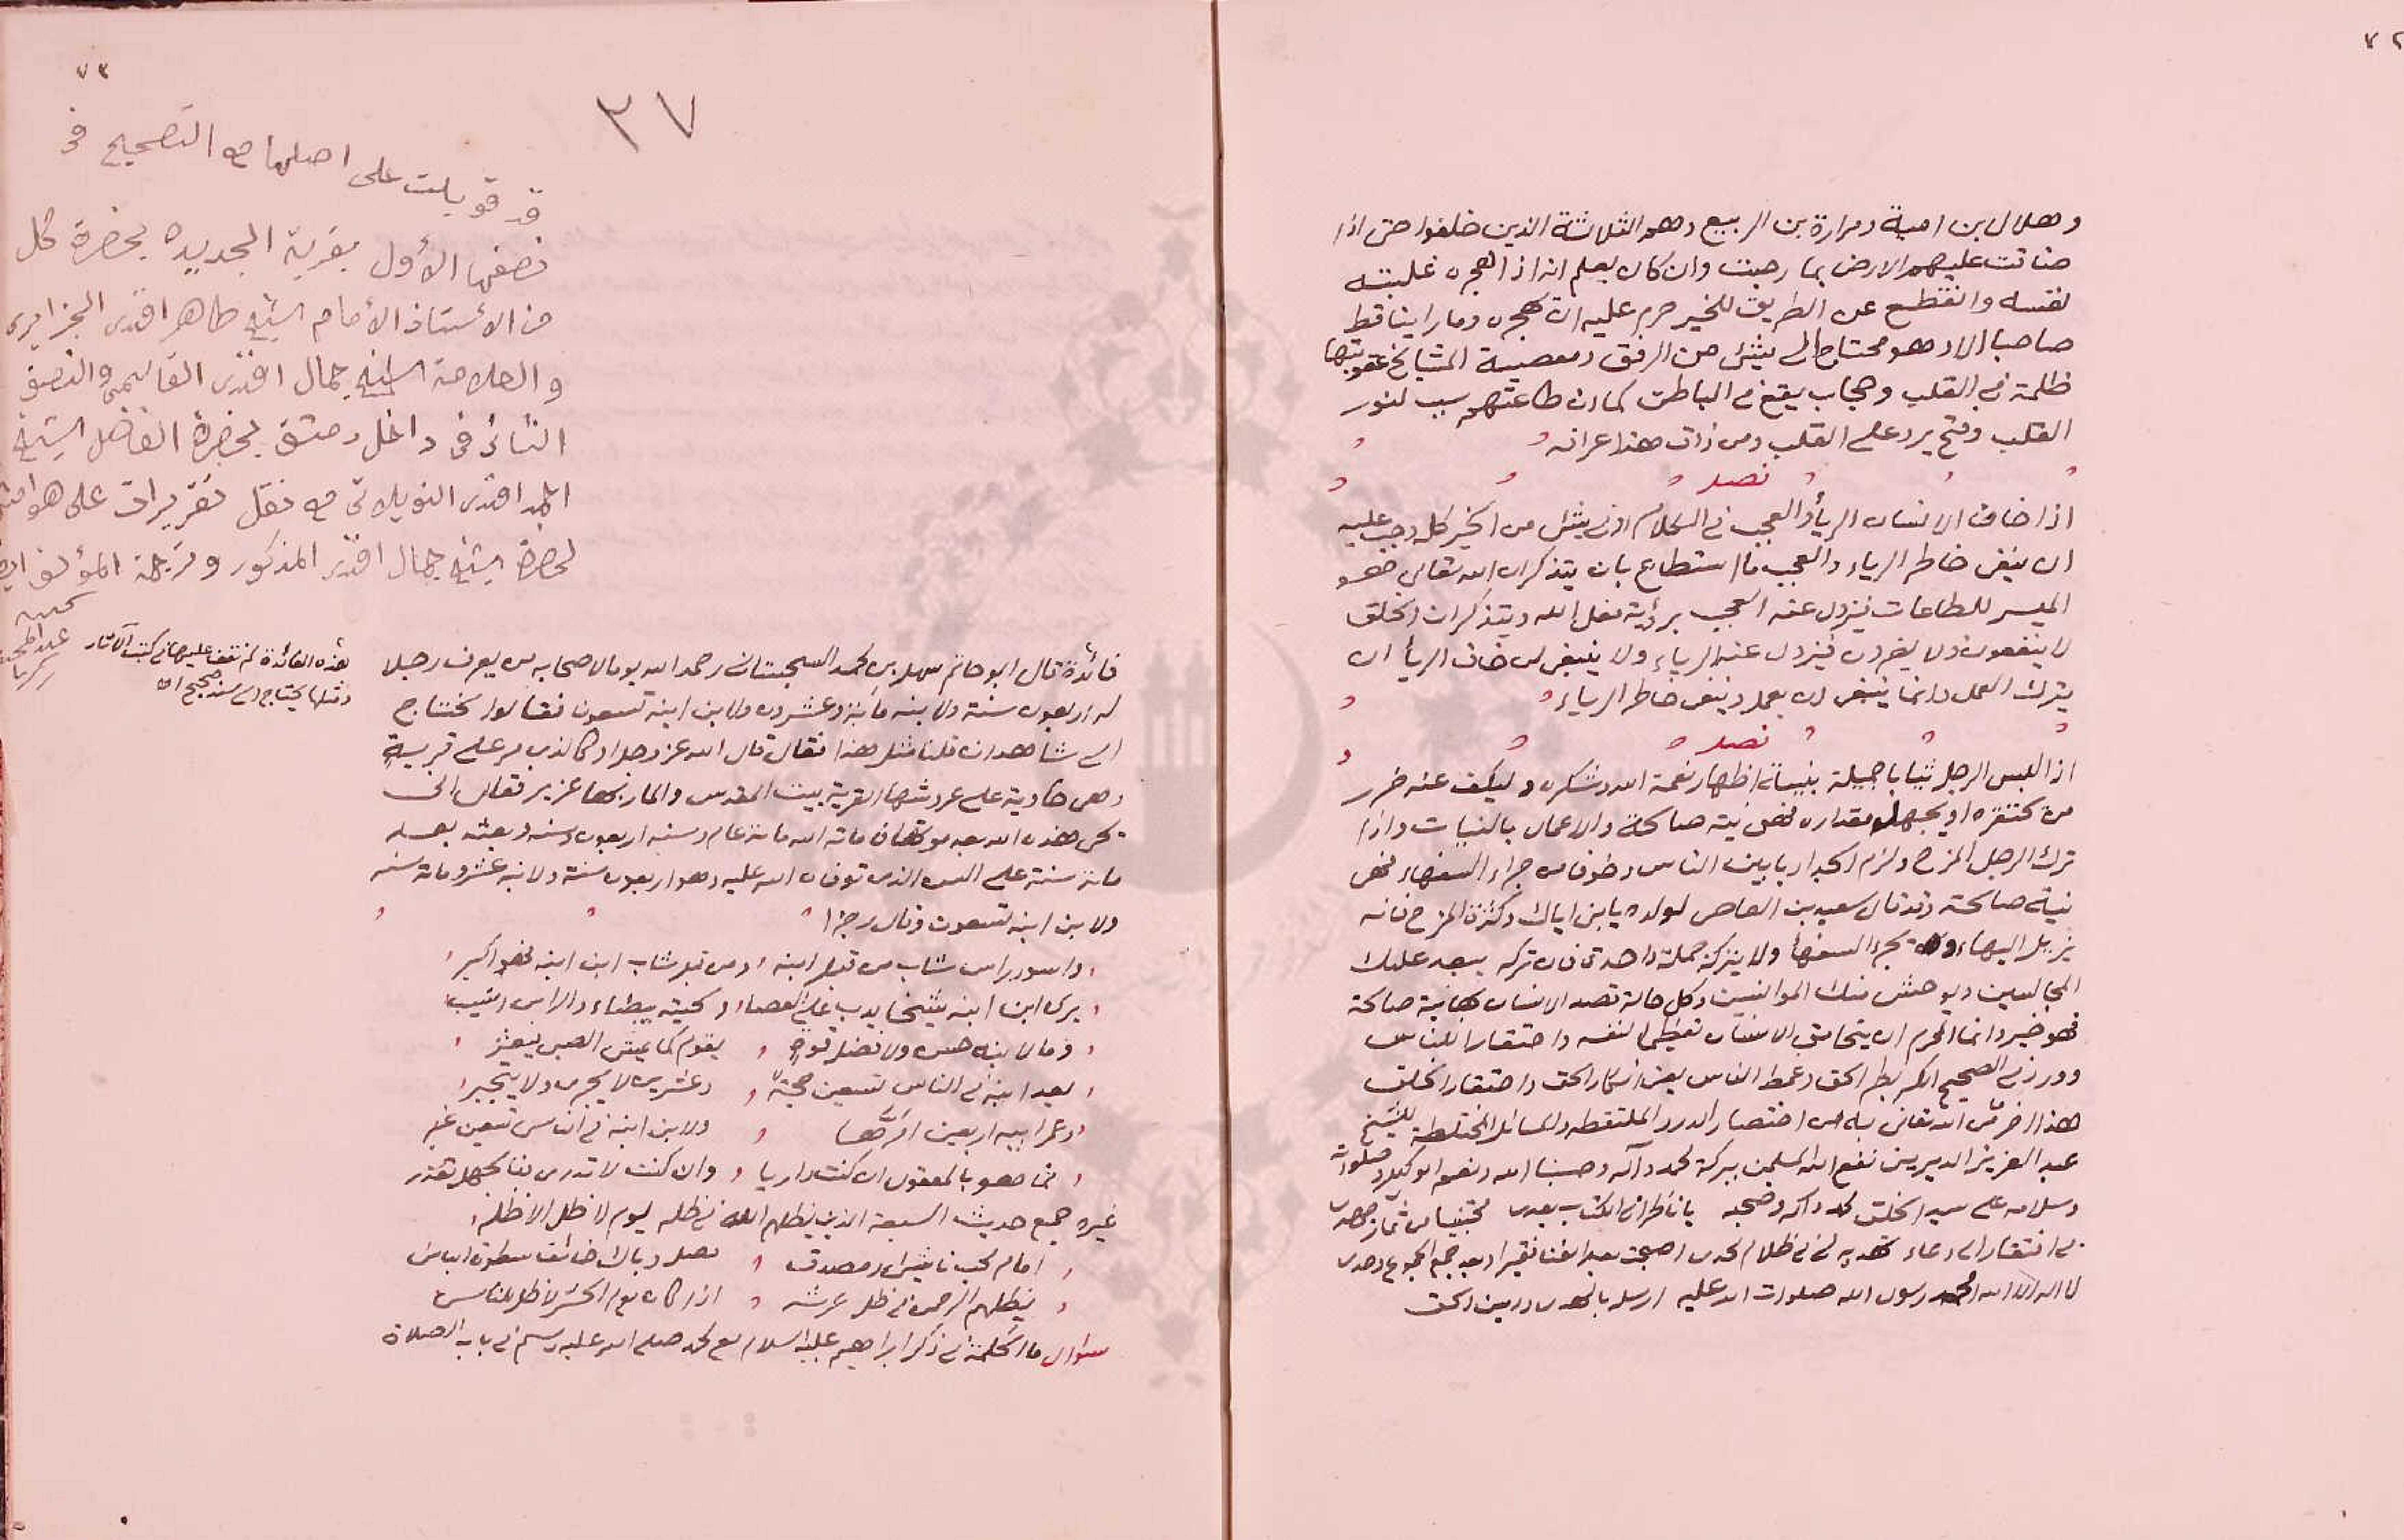 ٧٢
وهلال بن امية ومرارة بن الربيع وهم الثلاثة الذين خلفوا حتى اذا
ضاقت عليهم الارض بما رحبت وان كان يعلم انه اذا هجره غلبته
نفسه وانقطع عن الطريق للخير حرم عليه ان يهجره وما راينا قط
صاحبا الا وهو محتاج الى شئ من الرفق ومعصية المشايخ عقوبتها
ظلمة في القلب وحجاب يقع في الباطن كما ان طاعتهم سبب لنور
القلب وفتح يرد على القلب ومن ذاق هذا عرفه
فصل
اذا خاف الانسان الرياء والعجب في الكلام او في شئ من الخير كله وجب عليه
ان ينفى خاطر الرياء والعجب ما استطاع بان يتذكر ان الله تعالى هو
الميسر للطاعات فيزول عنه العجب برؤية فعل الله ويتذكر ان الخلق
لا ينفعون ولا يضرون فيزول عنه الرياء ولا ينبغى لمن خاف الريا ان
يترك العمل وانما ينبغى ان يعمل وينفى خاطر الرياء
فصل
اذا لبس الرجل ثيابا جميلة بنية اظهار نعمة الله وشكره وليكف عنه ضرر
من يحتقره او يجهل مقداره فهى نية صالحة والاعمال بالنيات واذا
ترك الرجل المزح ولزم الجد اربا بين الناس وخوفا من جراءة السفهاء فهى
نية صالحة وقد قال سعيد بن العاص لولده يابنى اياك وكثرة المزح فانه
يزيل البهاء ويجرء السفها ولا يتركه جملة واحدة فان تركه يبعد عليك
المجالسين ويوحش منك الموانسين وكل حالة قصد الانسان بها نية صالحة
فهو خير وانما المحرم ان يتحامى الانسان تعظيما لنفسه واحتقارا للناس
وورد في الصحيح الكبر بطر الحق وغمط الناس يعنى انكار الحق واحتقار الخلق
هذا اخر ما من الله تعالى به من اختصار الدرر الملتقطه والمسائل المختلطه للشيخ
عبد العزيز الديرينى نفع الله المسلمين ببركة محمد وآله وحسبنا الله ونعم الوكيل وصلوات
وسلامه على سيد الخلق محمد واله وصحبه يا ناظرا في الكتاب بعدى مجتنيا من ثمار جهدى
بي افتقار الى دعاء تهديه لي في ظلام لحدى اصبحت بعد الغنا فقيرا وبعد جمع الجموع وحدى
لا اله الا الله محمد رسول الله صلوات الله عليه ارسله بالهدى ودين الحق
٧٣
٣٧
قد قوبلت على اصلها مع التصحيح فى
نصفها الأول بقرية الجديده بحضرة كل
من الاستاذ الأمام الشيخ طاهر افندى الجزايرى
والعلامة الشيخ جمال افندى القاسمى والنصف
الثانى فى داخل دمشق بحضرة الفاضل الشيخ
افندى النويلاتى مع نقل تقريرات على هوامشها
لحضرة الشيخ جمال افندى المذكور وترجمة المؤلف ايضا
كتبه
هذه الفائدة لم نقف عليها في كتب الآثار
ومثلها يحتاج الى سند صحيح اه
فائدة قال ابو حاتم سهل بن محمد السجستانى رحمه الله يوما لاصحابه من يعرف رجلا
له اربعون سنة ولابنه مائة وعشرون ولابن ابنه تسعون فقالوا نحتاج
الى شاهد ان قلنا مثل هذا فقال قال الله عز وجل او كالذي مر على قرية
وهى خاوية على عروشها القرية بيت المقدس والمار بها عزير فقال انى
يحى هذه الله بعد موتها فاماته الله مائة عام وسنه اربعون سنه وبعثه بعد
مائة سنة على السن الذي توفاه الله عليه وهو اربعون سنة ولابنه عشر ومائة سنه
ولابن ابنه تسعون وقال رجزا
واسود راس شاب من قبل ابنه ومن قبله شاب ابن ابنه فهو اكبر
يرى ابن ابنه شيخا يدب على العصا ولحيته بيضاء والراس اشيب
وما لابنه حس ولا فضل قوة يقوم كما يمشى الصبى فيعثر
يعد ابنه في الناس تسعين حجة وعشرين لا يجرى ولا يتجبر
وعمر ابيه اربعين ولابن ابنه في الناس تسعين غبر
فما هو بالمعقول ان كنت داريا وان كنت لا تدرى فبالجهل تعذر
غيره جمع حديث السبعة الذين يظلهم الله في ظله يوم لا ظل الا ظله
امام محب ناشئ ومصدق مصل وباك خائف سطوة الباس
يظلهم الرحمن في ظل عرشه اذا كان يوم الحشر لا ظل للناس
سؤال ما الحكمة في ذكر ابراهيم عليه السلام مع محمد صلى الله عليه وسلم في باب الصلاة